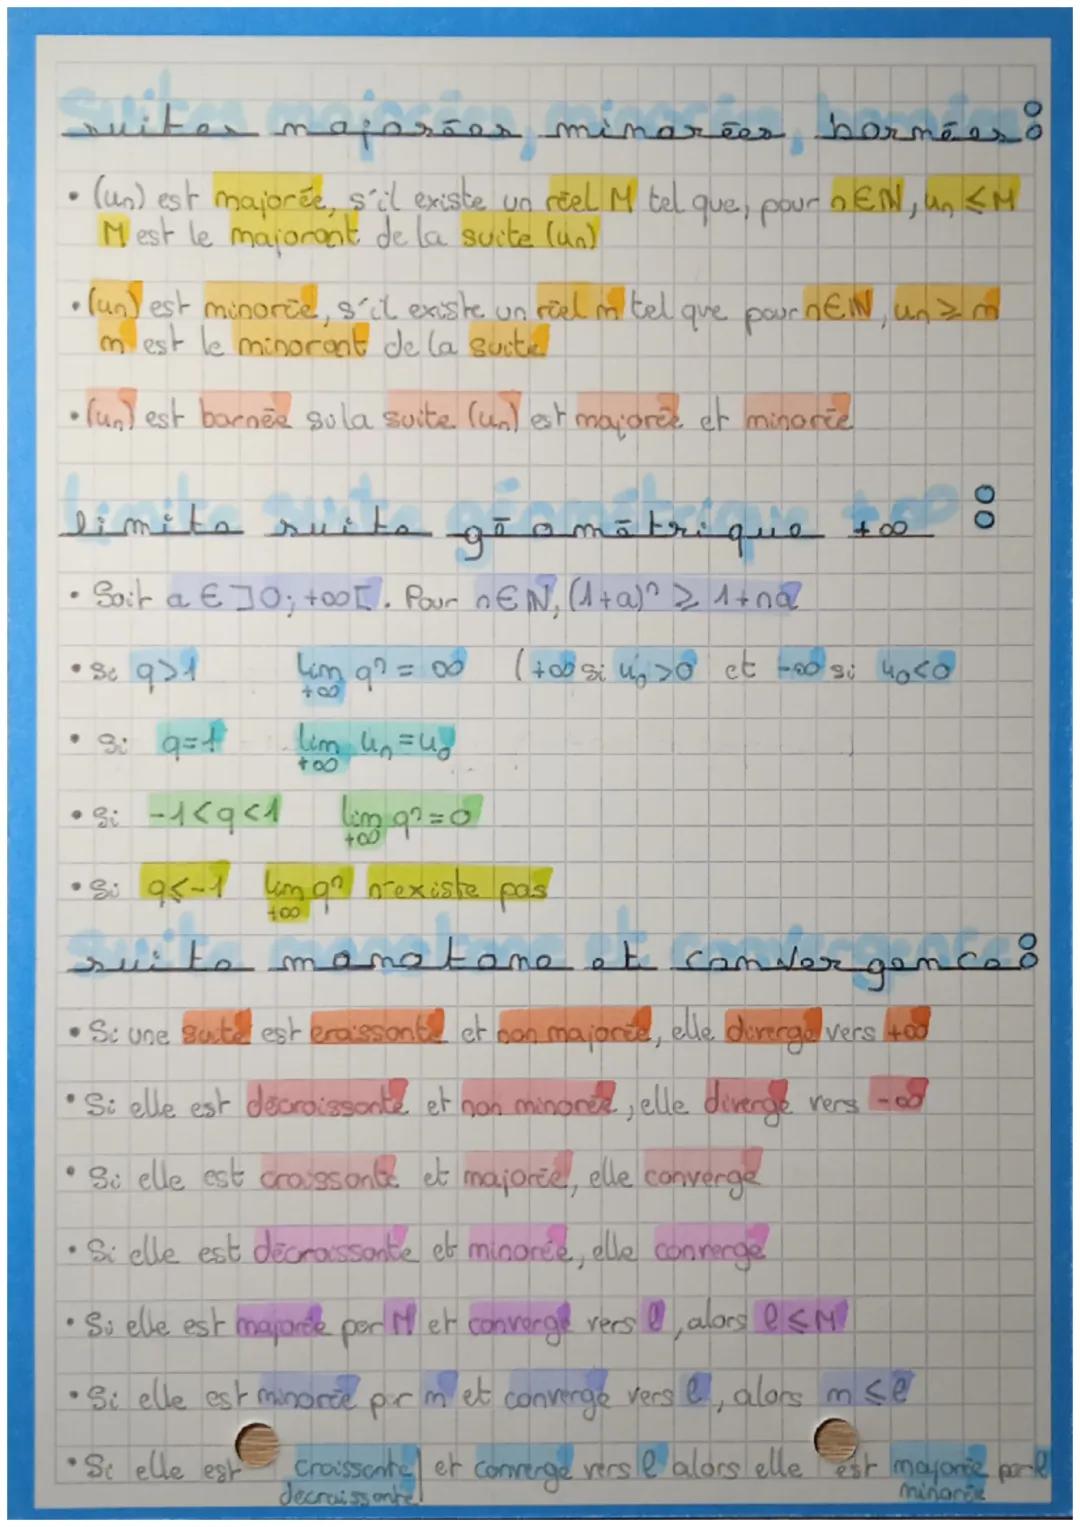 suites majorées, minorées, bornées :
• (un) est majorée, s'il existe un réel M tel que, pour n∈ℕ, un ≤ M
M est le majorant de la suite (un)
• (un) est minorée, s'il existe un réel m tel que pour n∈ℕ, un ≥ m
m est le minorant de la suite
• (un) est bornée si la suite (un) est majorée et minorée
limite suite géométrique +∞ :
• Soit a ∈ ]0; +∞[. Pour n∈ℕ, (1+a)ⁿ ≥ 1+na
• Si q>1 lim qⁿ = ∞ (+∞ si u₀>0 et -∞ si u₀<0
+∞
• Si q=1 lim un = u₀
+∞
• Si -1<q<1 lim qⁿ=0
+∞
• Si q≤-1 lim qⁿ n'existe pas
+∞
suite monotone et convergence :
• Si une suite est croissante et non majorée, elle diverge vers +∞
• Si elle est décroissante et non minorée, elle diverge vers -∞
• Si elle est croissante et majorée, elle converge
• Si elle est décroissante et minorée, elle converge
• Si elle est majorée par M et converge vers ℓ, alors ℓ≤M
• Si elle est minorée par m et converge vers ℓ, alors m ≤ℓ
• Si elle est croissante et converge vers ℓ alors elle est majorée par ℓ
decroissante minorée